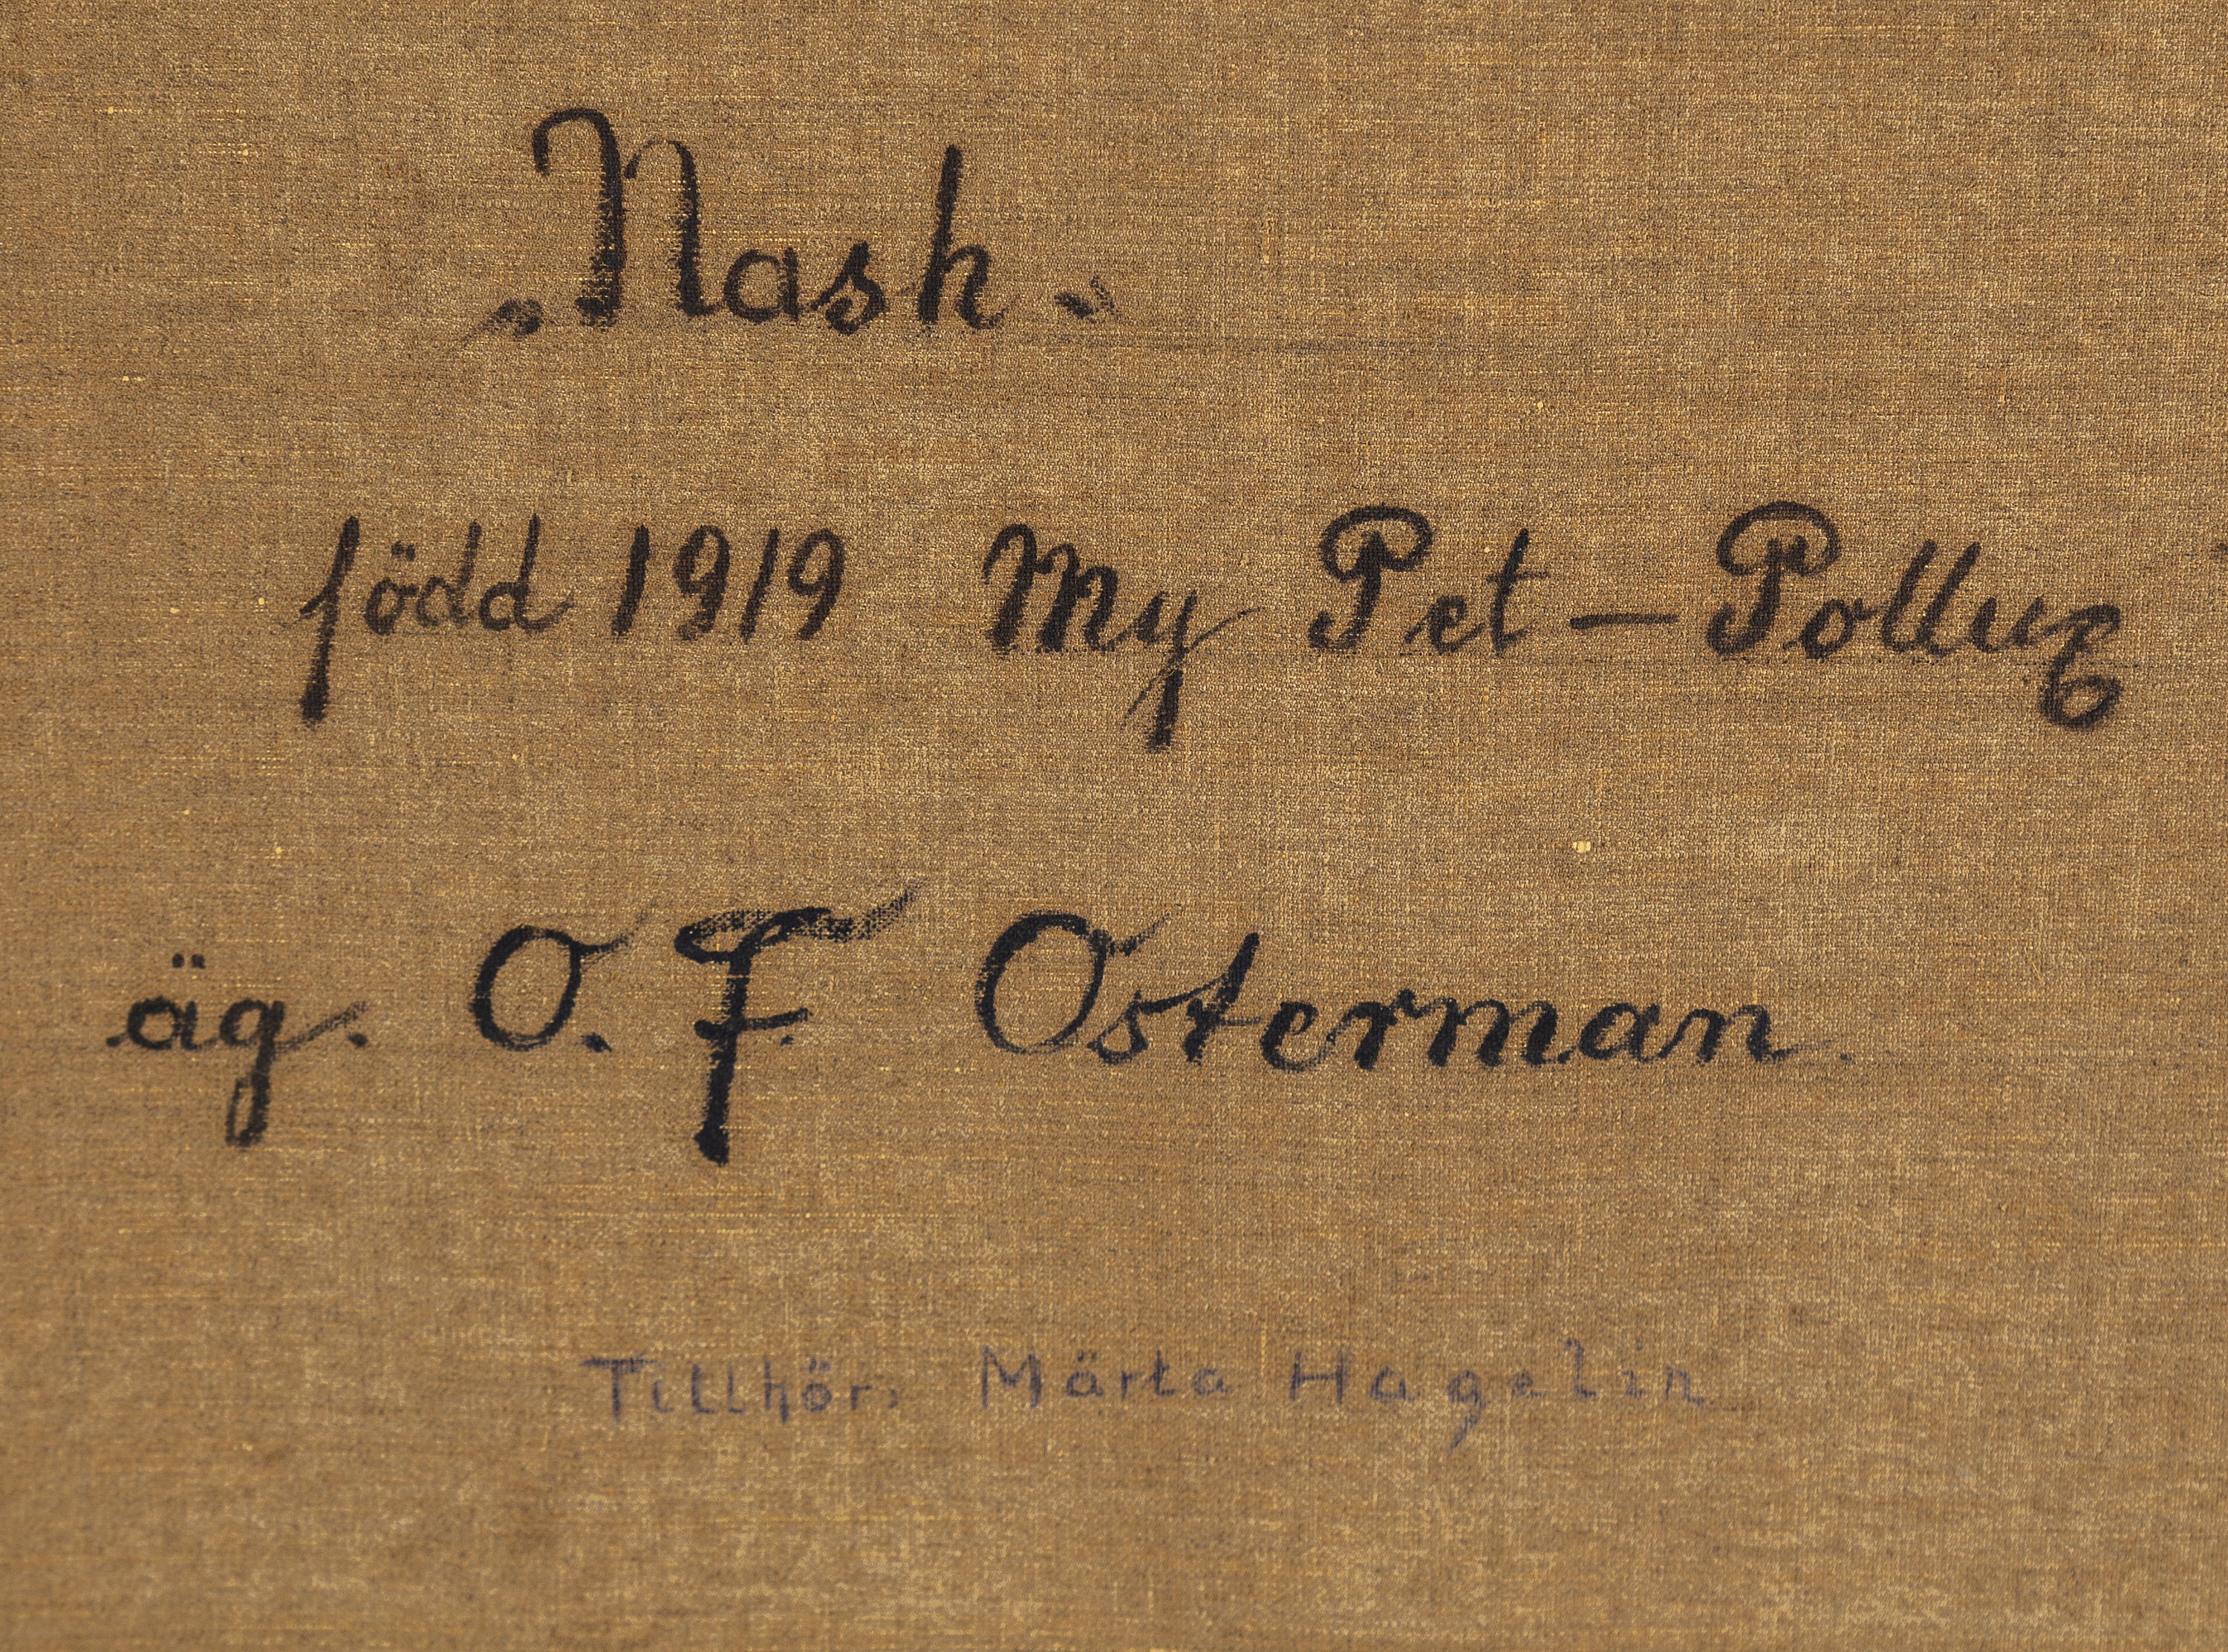 „Nash.
född 1919 My Pet – Pollux
äg. O. F. Osterman.
Tillhör. Märta Hagelin